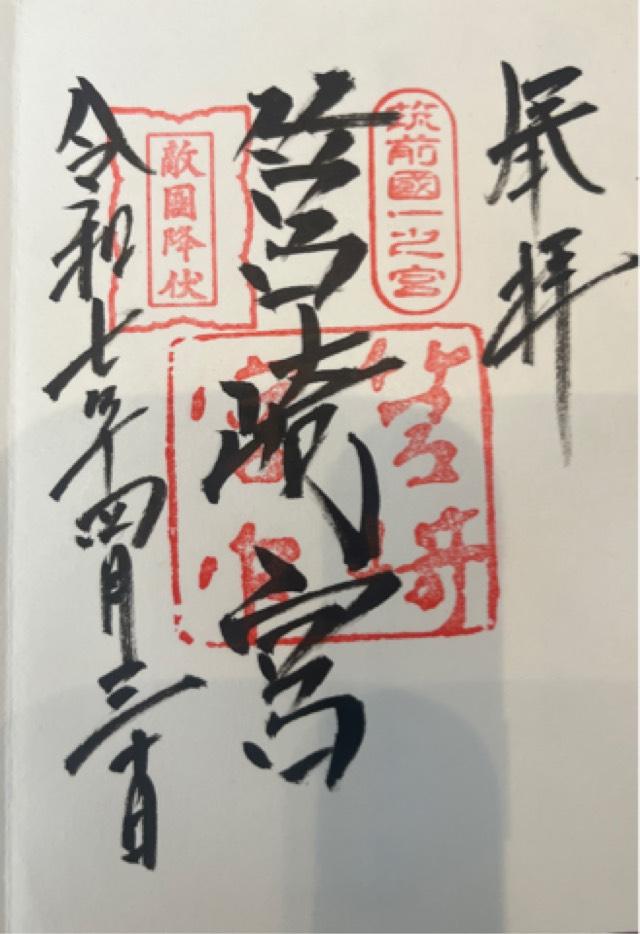 奉拝
筑前國一之宮
筥崎宮
筥崎
宮印
敵國降伏
令和七年四月三十日